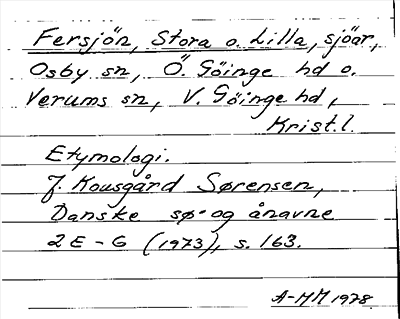 Fersjön, Stora o. Lilla, sjöar,
Osby sn, Ö. Göinge hd o.
Verums sn, V. Göinge hd,
Krist.l.
Etymologi.
J. Kousgård Sørensen,
Danske sø- og ånavne
2 E-G (1973), s. 163.
A-MM 1978.